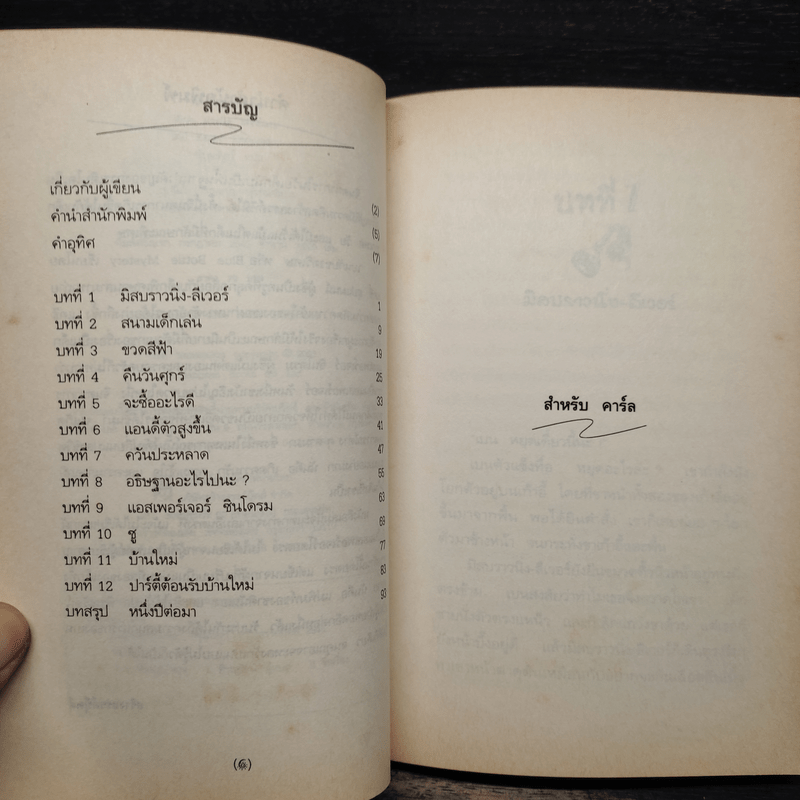 สารบัญ
เกี่ยวกับผู้เขียน (2)
คำนำสำนักพิมพ์ (5)
คำอุทิศ (7)
บทที่ 1 มิสบราวนิ่ง-ลีเวอร์ 1
บทที่ 2 สนามเด็กเล่น 9
บทที่ 3 ขวดสีฟ้า 19
บทที่ 4 คืนวันศุกร์ 25
บทที่ 5 จะซื้ออะไรดี 33
บทที่ 6 แอนดี้ตัวสูงขึ้น 41
บทที่ 7 ควันประหลาด 47
บทที่ 8 อธิษฐานอะไรไปนะ ? 55
บทที่ 9 แอสเพอร์เจอร์ ซินโดรม 63
บทที่ 10 ซู 69
บทที่ 11 บ้านใหม่ 77
บทที่ 12 ปาร์ตี้ต้อนรับบ้านใหม่ 83
บทสรุป หนึ่งปีต่อมา 93
สำหรับ คาร์ล